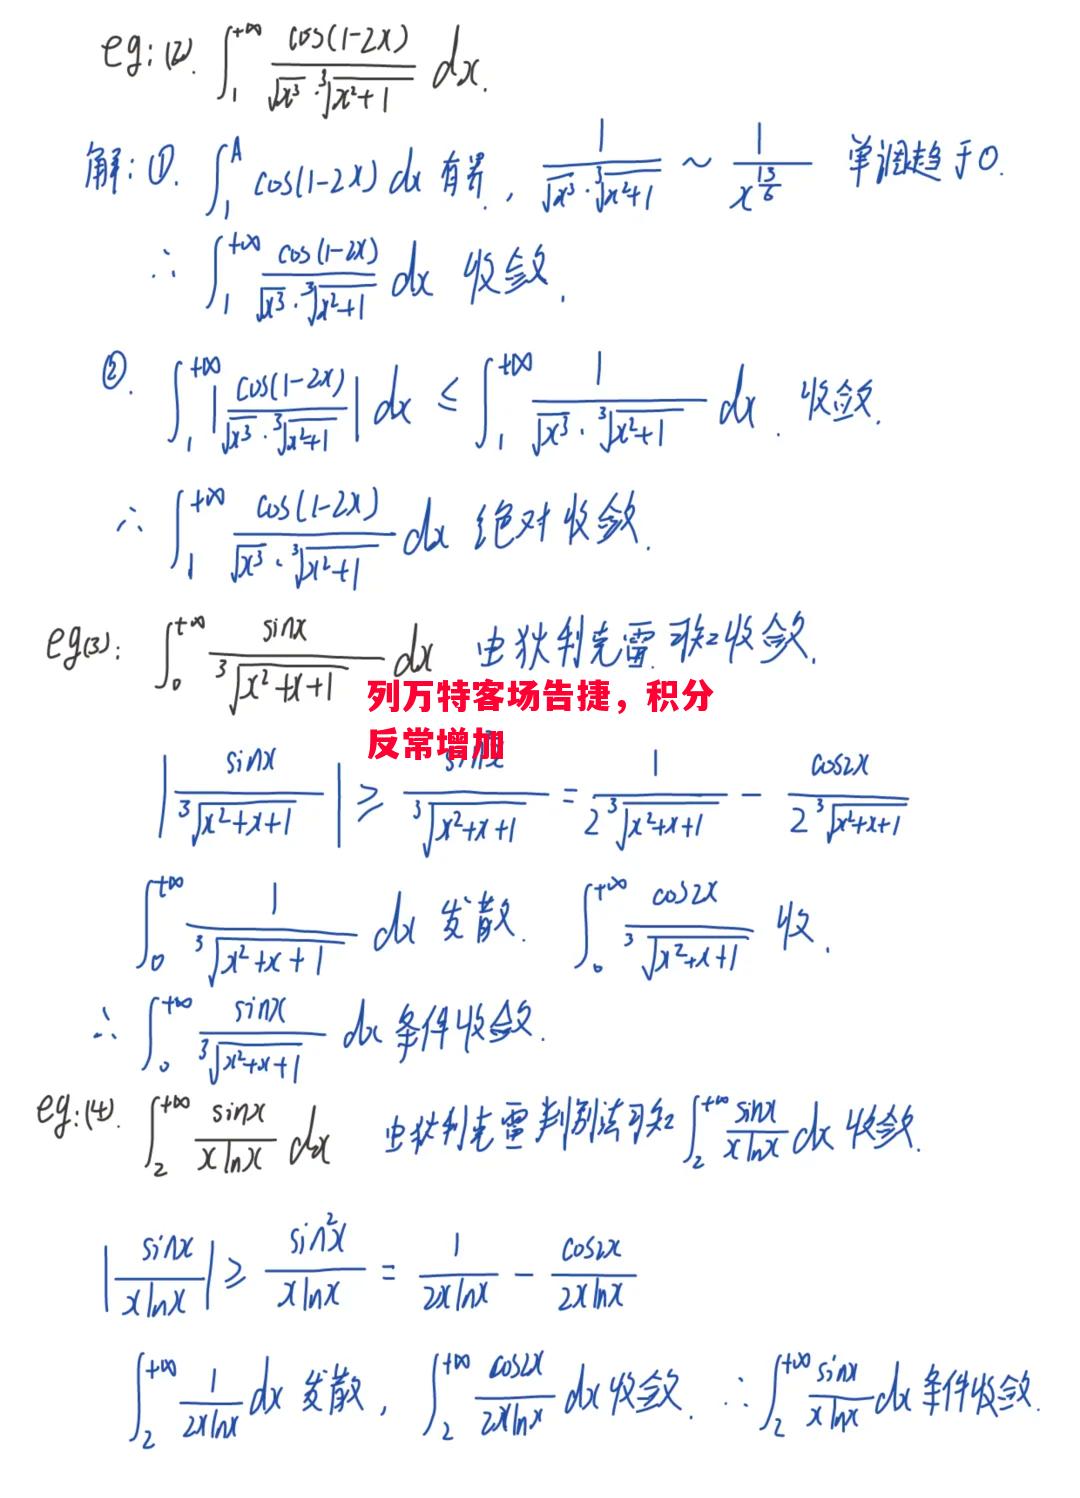 eg:(2). ∫₁^{+∞} cos(1-2x) / (√x³ · ∛(x²+1)) dx.
解:①. ∫₁^A cos(1-2x) dx 有界, 1 / (√x³ · ∛(x²+1)) ~ 1 / x^{13/6} 单调趋于0.
∴ ∫₁^{+∞} cos(1-2x) / (√x³ · ∛(x²+1)) dx 收敛.
②. ∫₁^{+∞} | cos(1-2x) / (√x³ · ∛(x²+1)) | dx ≤ ∫₁^{+∞} 1 / (√x³ · ∛(x²+1)) dx. 收敛.
∴ ∫₁^{+∞} cos(1-2x) / (√x³ · ∛(x²+1)) dx 绝对收敛.
eg(3): ∫₀^{+∞} sinx / ∛(x²+x+1) dx 由狄利克雷 可知收敛.
列万特客场告捷，积分
反常增加
| sinx / ∛(x²+x+1) | ≥ sin²x / ∛(x²+x+1) = 1 / (2∛(x²+x+1)) - cos2x / (2∛(x²+x+1))
∫₀^{+∞} 1 / ∛(x²+x+1) dx 发散. ∫₀^{+∞} cos2x / ∛(x²+x+1) 收.
∴ ∫₀^{+∞} sinx / ∛(x²+x+1) dx 条件收敛.
eg:(4). ∫₂^{+∞} sinx / (x lnx) dx 由狄利克雷判别法可知 ∫₂^{+∞} sinx / (x lnx) dx 收敛.
| sinx / (x lnx) | ≥ sin²x / (x lnx) = 1 / (2x lnx) - cos2x / (2x lnx)
∫₂^{+∞} 1 / (2x lnx) dx 发散, ∫₂^{+∞} cos2x / (2x lnx) dx 收敛. ∴ ∫₂^{+∞} sinx / (x lnx) dx 条件收敛.